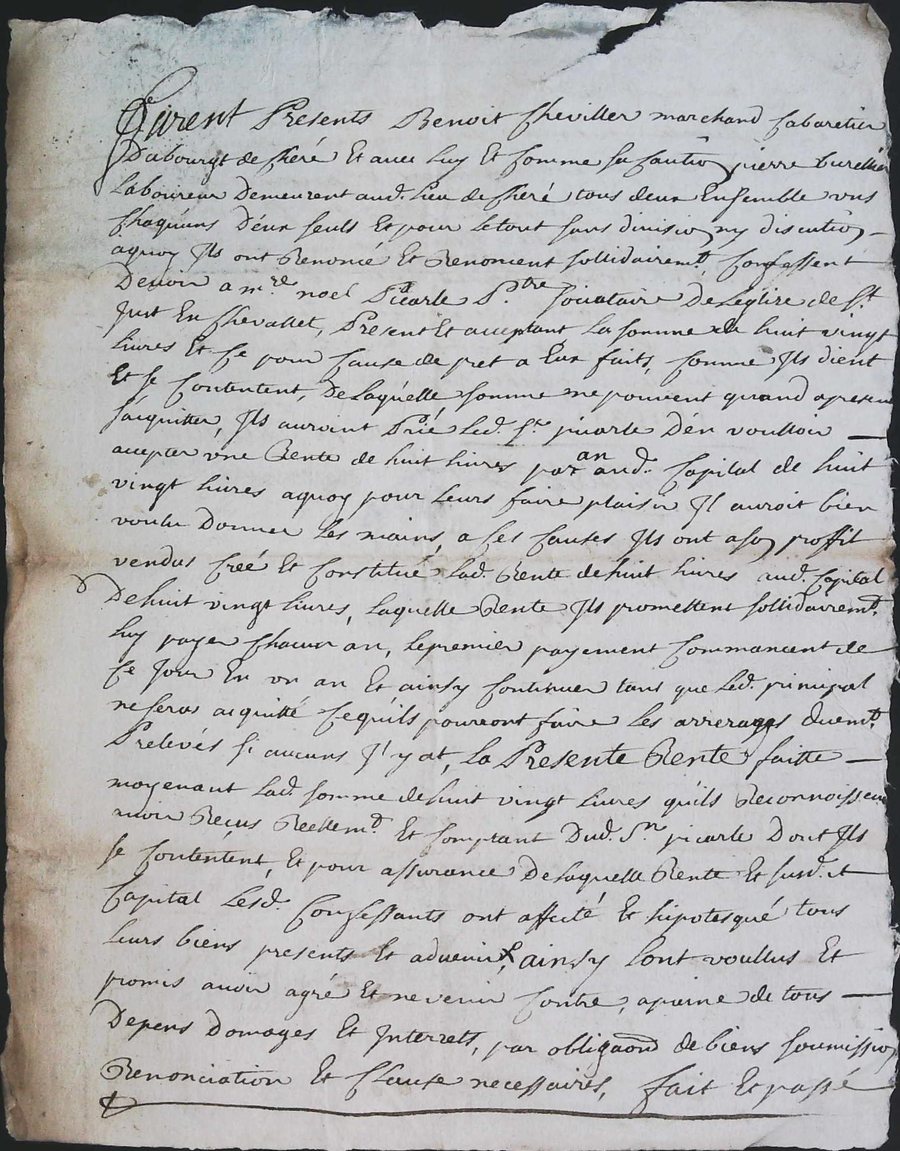 Furent Presents Benoit Cheviller marchand Cabaretier
Dabourgt de Cheré Et avec Luy Et Comme sa Cautio pierre
Laboureur Demeurent aud. Lieu de Cheré tous deux Ensemble uns
Chaquuns D'eux seuls Et pour Le tout sans division ny discution
aquoy Ils ont Renoncé Et Renoncent sollidairemt. Confessent
Devoir a mre noel Picarle Ptre sociataire De Leglise de St.
Just En Chevallet, Present Et acceptant La somme de huit vingt
Livres Et Ce pour Cause de pret a Eux faits, Comme Ils dient
Et se Contentent, De Laquelle somme ne pouvent quand apresent
s'acquitter, Ils auroint Prié Led. Sr picarle D'en voulloir
accepter une Rente de huit Livres par an aud. Capital de huit
vingt Livres aquoy pour Leurs faire plaisir Il auroit bien
voulu Donner Les mains, a Ces Causes Ils ont a son proffit
vendus Creé Et Constitué Lad. Rente de huit Livres aud. Capital
De huit vingt Livres, Laquelle Rente Ils promettent sollidairemt.
Luy payer Chacun an, Le premier payement Commancent de
Ce Jour En un an Et ainsy Continuer tans que Led. principal
ne seras acquitté Ce quils pourront faire Les arrerages duemt.
Prelevés si aucuns J'y at, La Presente Rente faitte
moyenant Lad. somme de huit vingt Livres quils Reconnoissent
avoir Recus Reellemt. Et Comptant Dud. Sr picarle Dont Ils
se Contentent, Et pour assurance De Laquelle Rente Et susd. et
Capital Lesd. Confessants ont affecté Et hipotesqué tous
Leurs biens presents Et advenir, ainsy Lont voullus Et
promis avoir agré Et ne venir Contre, apeine de tous
Depens Domages Et Interrets, par obligaon de biens soumission
Renonciation Et Clause necessaires, fait Et passé